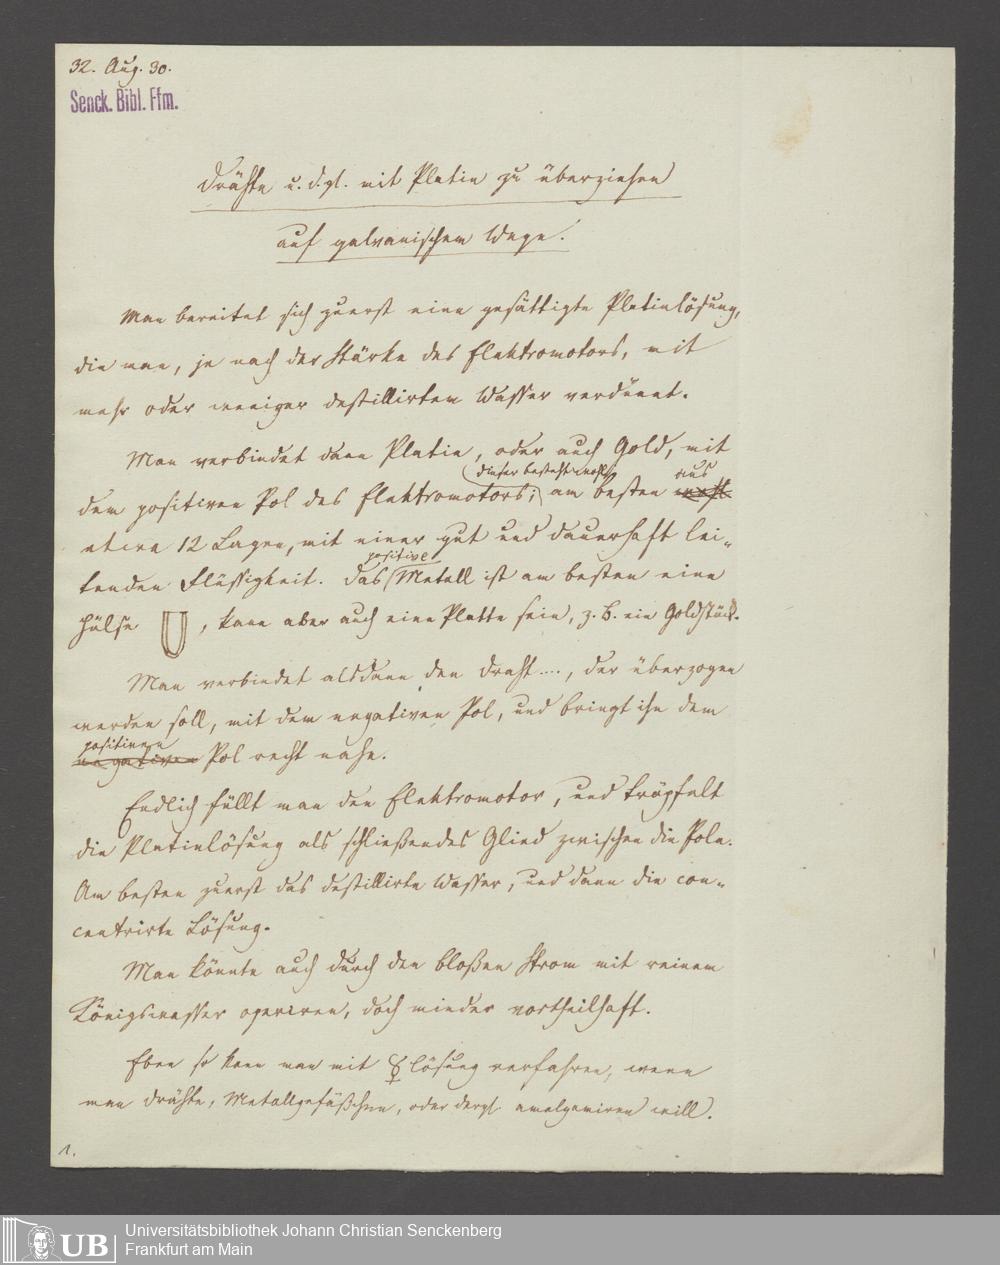 32. Aug. 30.
Senck. Bibl. Ffm.
Drähte u. d. gl. mit Platin zu überziehen
auf galvanischem Wege.
Man bereitet sich zuerst eine gesättigte Platinlösung,
die man, je nach der Stärke des Elektromotors, mit
mehr oder weniger destillirtem Wasser verdünnt.
Man verbindet dann Platin, oder auch Gold, mit
(dieser besteht wohl aus
dem positiven Pol des Elektromotors; am besten
etwa 12 Lagen, mit einer gut und dauerhaft lei-
positive
tenden Flüssigkeit. Das Metall ist am besten eine
Hülse , kann aber auch eine Platte sein, z. B. ein Goldstück.
Man verbindet alsdann den Draht...., der überzogen
werden soll, mit dem negativen Pol, und bringt ihn dem
positiven
negativen Pol recht nahe.
Endlich füllt man den Elektromotor, und tröpfelt
die Platinlösung als schließendes Glied zwischen die Pole.
Am besten zuerst das destillirte Wasser, und dann die con-
centrirte Lösung.
Man könnte auch durch den bloßen Strom mit reinem
Königswasser operiren, doch minder vortheilhaft.
Eben so kann man mit ☿lösung verfahren, wenn
man Drähte, Metallgefäßchen, oder dergl. amalgamiren will.
1.
UB
Universitätsbibliothek Johann Christian Senckenberg
Frankfurt am Main